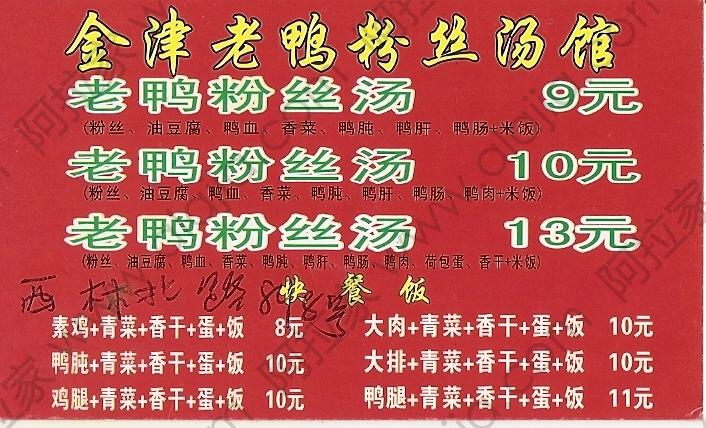 金津老鸭粉丝汤馆
老鸭粉丝汤 9元
(粉丝、油豆腐、鸭血、香菜、鸭肫、鸭肝、鸭肠+米饭)
老鸭粉丝汤 10元
(粉丝、油豆腐、鸭血、香菜、鸭肫、鸭肝、鸭肠、鸭肉+米饭)
老鸭粉丝汤 13元
(粉丝、油豆腐、鸭血、香菜、鸭肫、鸭肝、鸭肠、鸭肉、荷包蛋、香干+米饭)
快餐饭
素鸡+青菜+香干+蛋+饭 8元 大肉+青菜+香干+蛋+饭 10元
鸭肫+青菜+香干+蛋+饭 10元 大排+青菜+香干+蛋+饭 10元
鸡腿+青菜+香干+蛋+饭 10元 鸭腿+青菜+香干+蛋+饭 11元
阿拉家